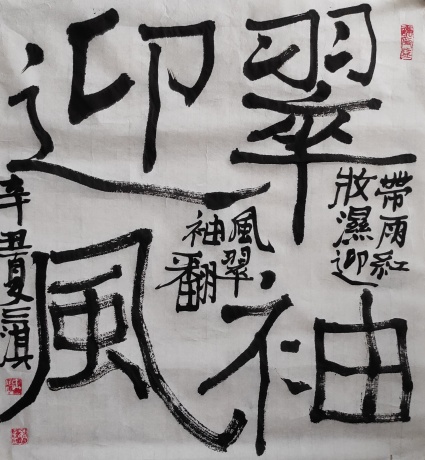 翠袖
迎風
帶雨紅
妝濕迎
風翠
袖翻
辛丑夏